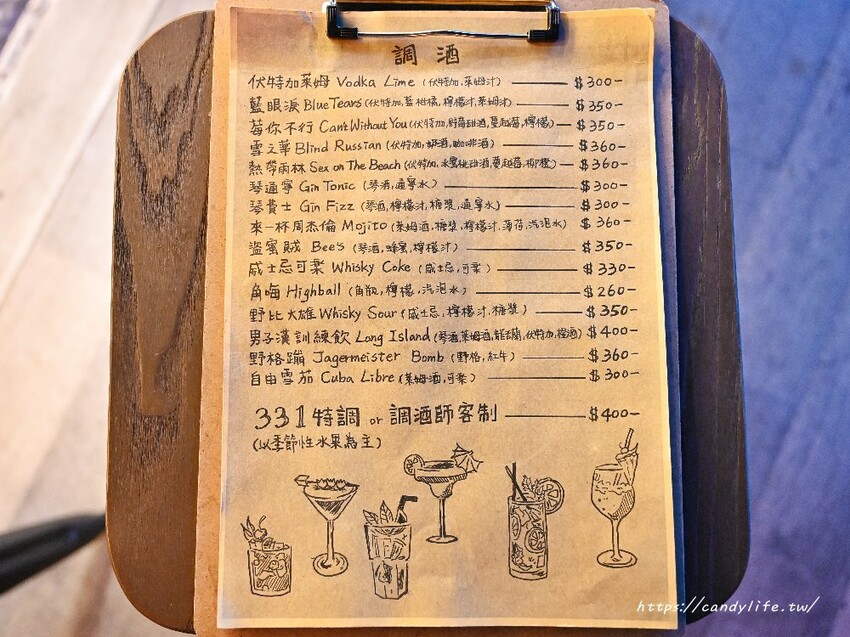 調酒
伏特加萊姆 Vodka Lime (伏特加,萊姆汁) $300-
藍眼淚 Blue Tears (伏特加,藍柑橘,檸檬汁,萊姆汁) $350-
莓你不行 Can't Without You (伏特加,野莓甜酒,蔓越莓,檸檬) $350-
雪之華 Blind Russian (伏特加,奶酒,咖啡酒) $360-
熱帶雨林 Sex on The Beach (伏特加,水蜜桃甜酒,蔓越莓,柳橙) $360-
琴通寧 Gin Tonic (琴酒,通寧水) $300-
琴費士 Gin Fizz (琴酒,檸檬汁,糖漿,通寧水) $300-
來一杯周杰倫 Mojito (萊姆酒,糖漿,檸檬汁,薄荷,汽泡水) $360-
盜蜜賊 Bee's (琴酒,蜂蜜,檸檬汁) $350-
威士忌可樂 Whisky Coke (威士忌,可樂) $330-
角嗨 Highball (角瓶,檸檬,汽泡水) $260-
野比大雄 Whisky Sour (威士忌,檸檬汁,糖漿) $350-
男子漢訓練飲 Long Island (琴酒,萊姆酒,龍舌蘭,伏特加,橙酒) $400-
野格蹦 Jagermeister Bomb (野格,紅牛) $360-
自由雪茄 Cuba Libre (萊姆酒,可樂) $300-
331特調 or 調酒師客制 $400-
(以季節性水果為主)
https://candylife.tw/